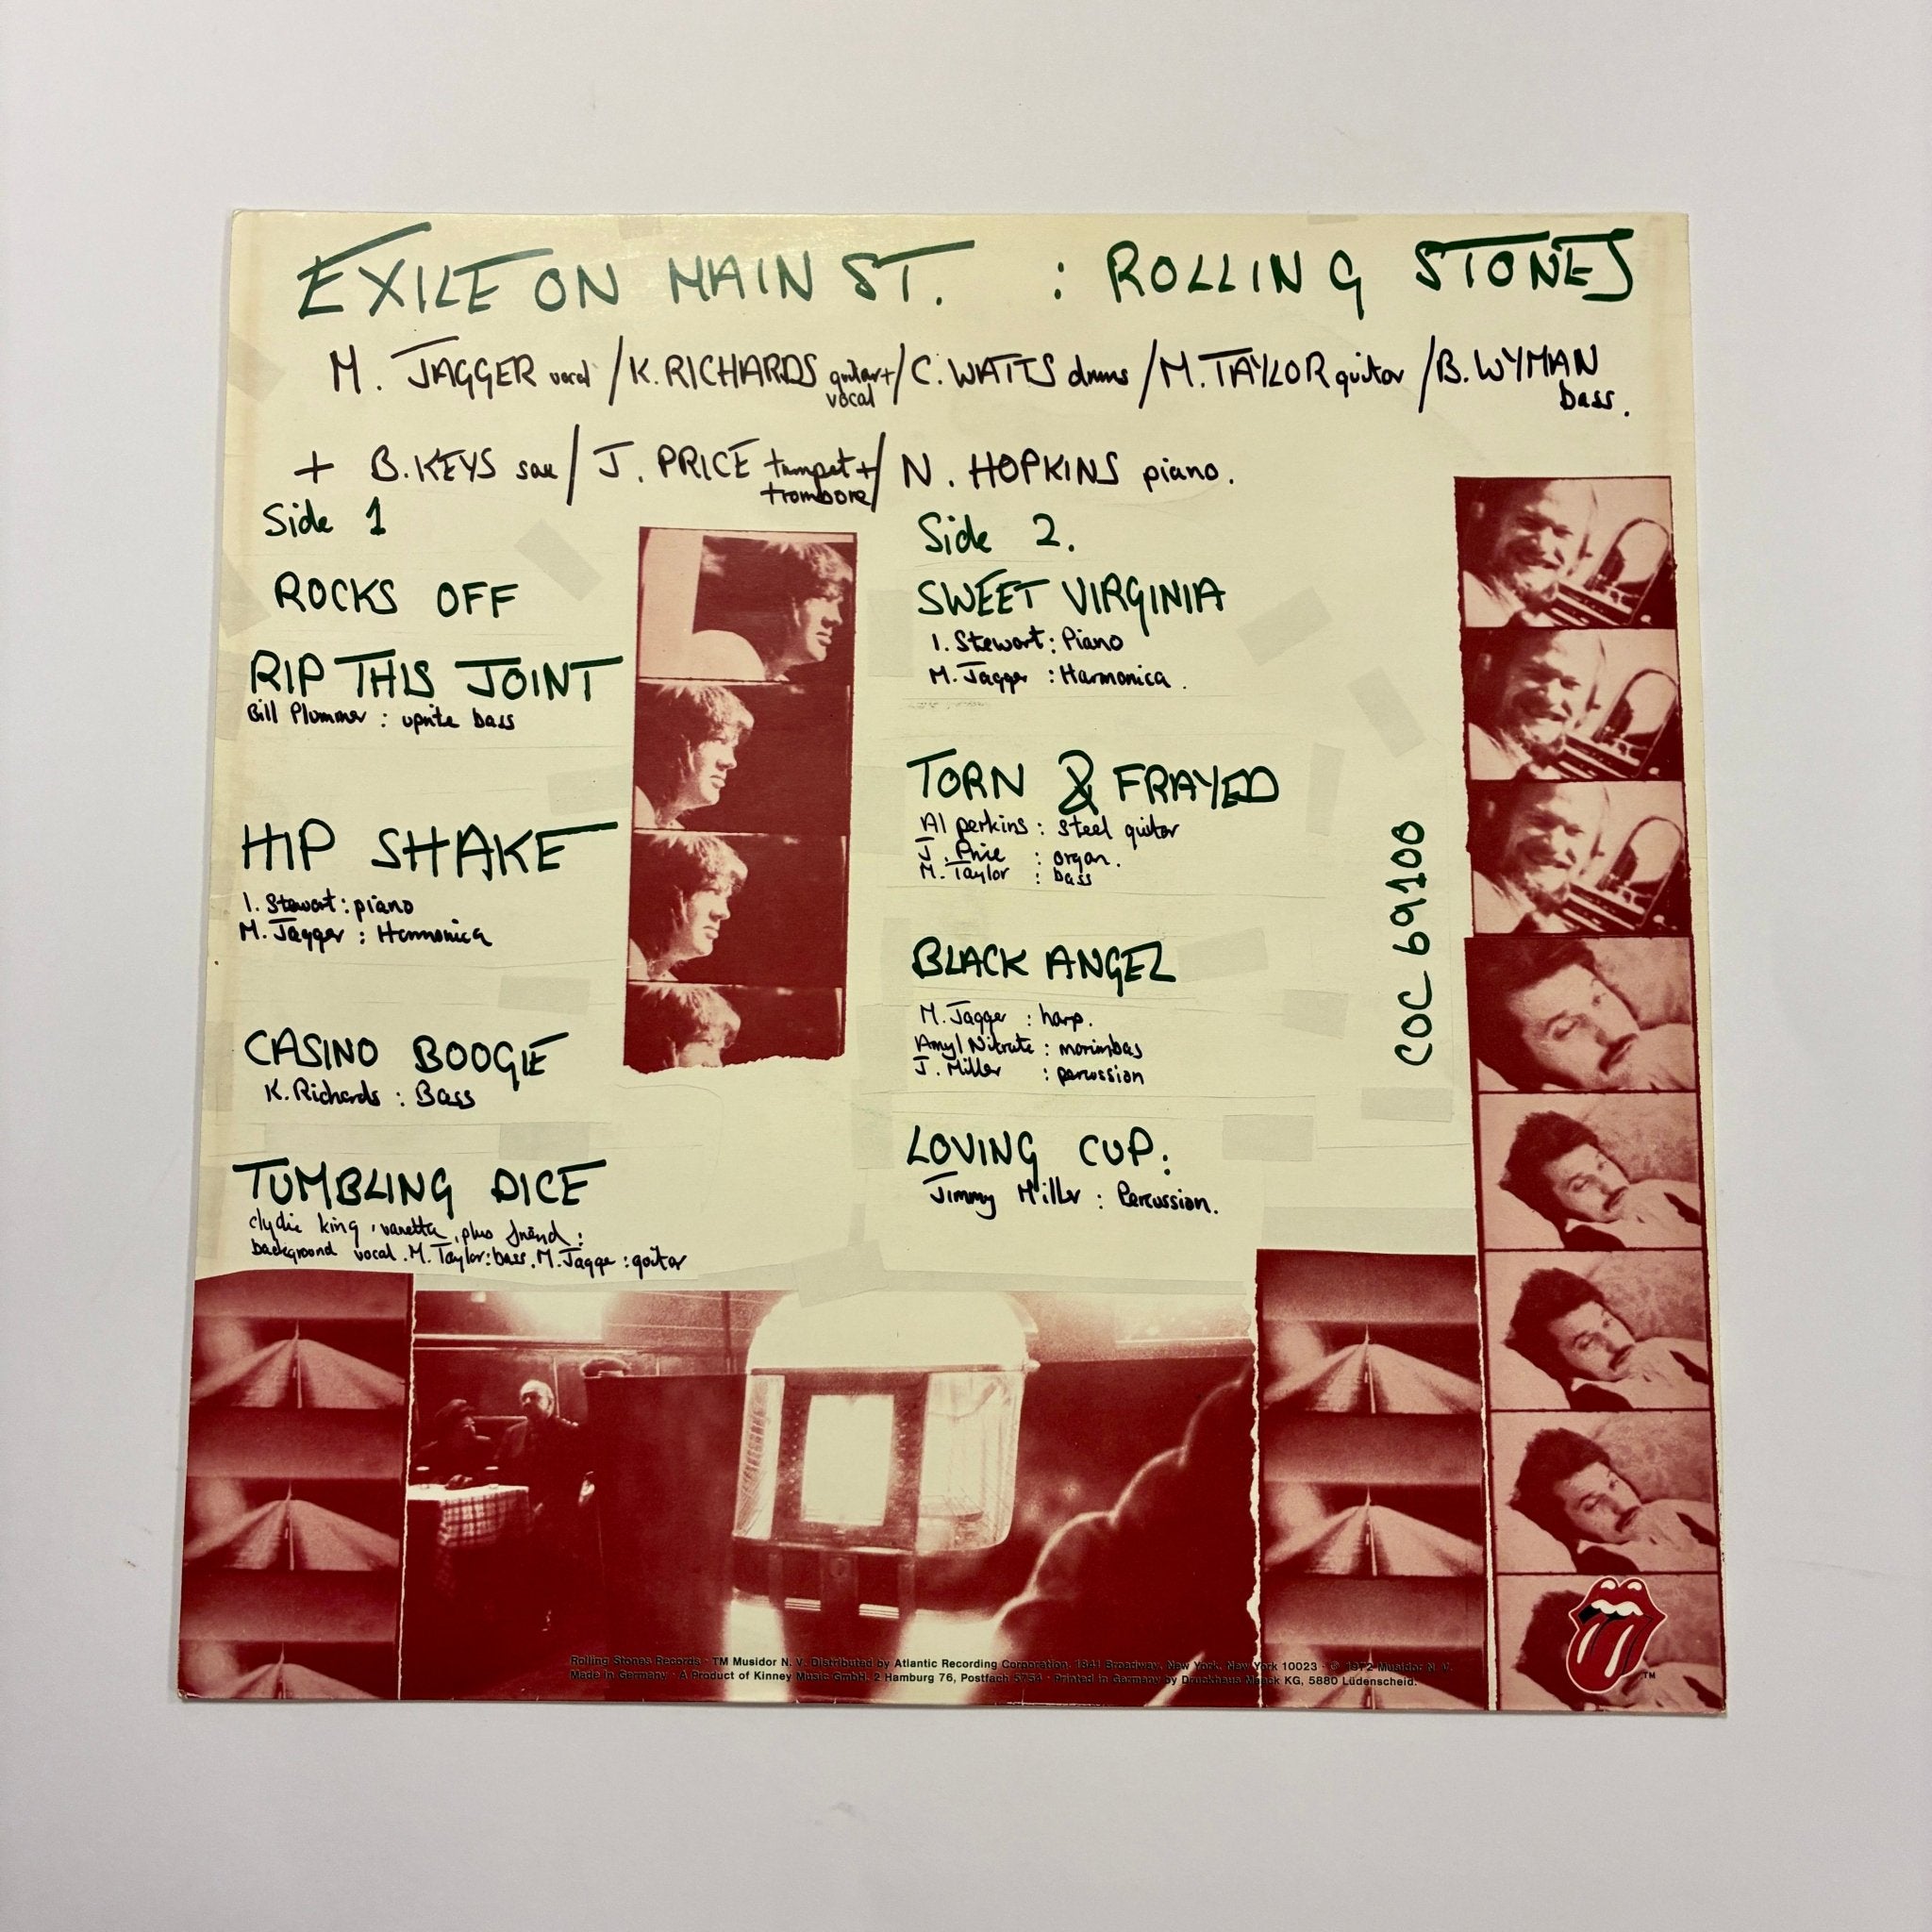 EXILE ON MAIN ST. : ROLLING STONES
M. JAGGER vocal / K. RICHARDS guitar + vocal / C. WATTS drums / M. TAYLOR guitar / B. WYMAN bass.
+ B. KEYS sax / J. PRICE trumpet + trombone / N. HOPKINS piano.
Side 1
ROCKS OFF
RIP THIS JOINT
Bill Plummer : uprite bass
HIP SHAKE
I. Stewart : piano
M. Jagger : Harmonica
CASINO BOOGIE
K. Richards : Bass
TUMBLING DICE
clydie king, vanetta, plus friend :
background vocal. M. Taylor : bass. M. Jagger : guitar
Side 2.
SWEET VIRGINIA
I. Stewart : Piano
M. Jagger : Harmonica.
TORN & FRAYED
Al perkins : steel guitar
J. Price : organ.
M. Taylor : bass
BLACK ANGEL
M. Jagger : harp.
Amyl Nitrate : marimbas
J. Miller : percussion
LOVING CUP :
Jimmy Miller : Percussion.
COC 69100
Rolling Stones Records · TM Musidor N. V. Distributed by Atlantic Recording Corporation, 1841 Broadway, New York, New York 10023 · © 1972 Musidor N. V.
Made in Germany · A Product of Kinney Music GmbH, 2 Hamburg 76, Postfach 5754 · Printed in Germany by Druckhaus Maack KG, 5880 Lüdenscheid.
TM